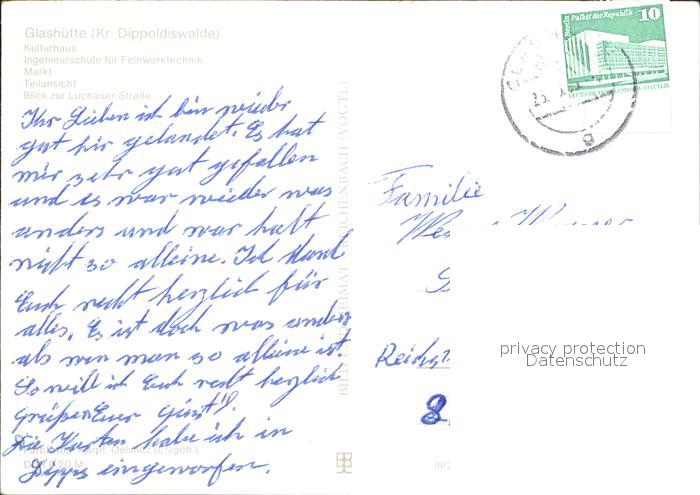 Glashütte (Kr. Dippoldiswalde)
Kulturhaus
Ingenieurschule für Feinwerktechnik
Markt
Teilansicht
Blick zur Luchauer Straße
Ihr Lieben ich bin wieder
gut hir gelandet. Es hat
mir sehr gut gefallen
und es war wieder was
anders und war halt
nicht so alleine. Ich dank
Euch recht herzlich für
alles. Es ist doch was anders
als wen man so alleine ist.
So will ich Euch recht herzlich
grüßen Euer
Die Karten habe ich in
Dipps eingeworfen.
Oelsnitz (Erzgeb.)
REICHENBACH (VOGTL)
Berlin Palast der Republik 10
Familie
8
privacy protection
Datenschutz